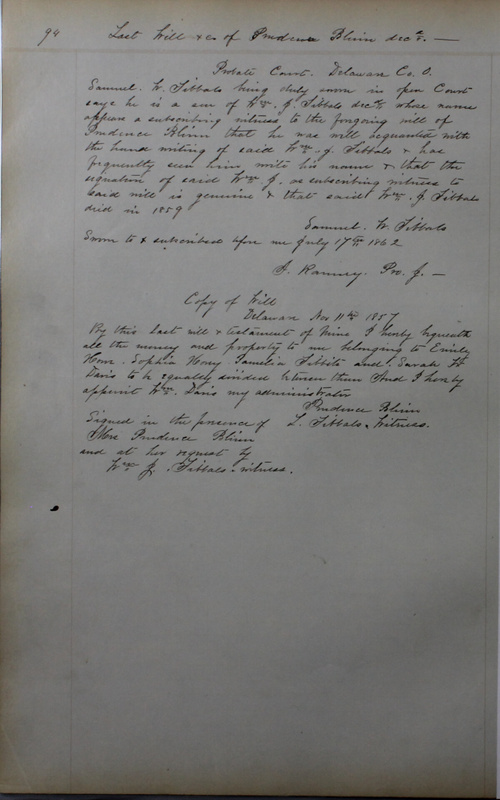 94 Last Will &c. of Prudence Blinn decd. —
Probate Court. Delaware Co. O.
Samuel. W. Tibbals being duly sworn in open Court
says he is a son of Wm. J. Tibbals decd. whose name
appears a subscribing witness to the forgoing will of
Prudence Blinn that he was well acquainted with
the hand writing of said Wm. J. Tibbals & has
frequently seen him write his name & that the
signature of said Wm. J. as subscribing witness to
said will is genuine & that said Wm. J. Tibbals
died in 1859
Samuel. W. Tibbals
Sworn to & subscribed before me July 17th 1862
J. Ranney. Pro. J. —
Copy of Will
Delaware Nov 11th 1857
By this last will & testament of mine I herby bequeath
all the money and property to me belonging to Emily
Sophia Pamelia Tibbits and Sarah
Davis to be equally divided between them And I herby
appoint Wm. Davis my administrator
Prudence Blinn
Signed in the presence of L. Tibbals. Witness.
Prudence Blinn
and at her request by
Wm J. Tibbals. witness.